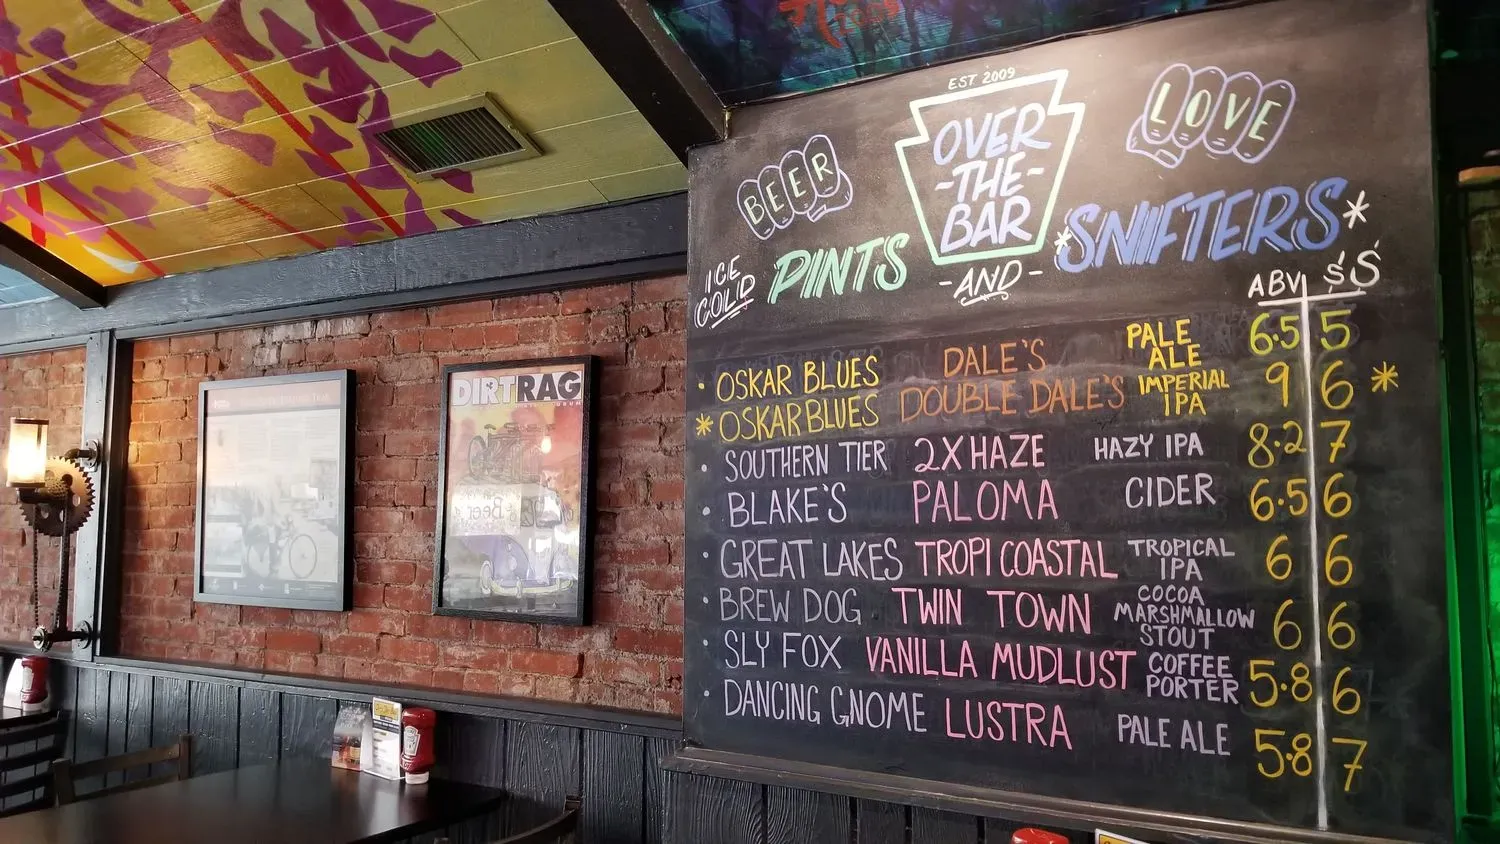 EST 2009
BEER
OVER
-THE-
BAR
LOVE
ICE
COLD
PINTS
-AND-
*SNIFTERS*
ABV $'S
· OSKAR BLUES DALE'S PALE ALE 6.5 5
* OSKAR BLUES DOUBLE DALE'S IMPERIAL IPA 9 6 *
· SOUTHERN TIER 2XHAZE HAZY IPA 8.2 7
· BLAKE'S PALOMA CIDER 6.5 6
· GREAT LAKES TROPICOASTAL TROPICAL IPA 6 6
· BREW DOG TWIN TOWN COCOA MARSHMALLOW STOUT 6 6
· SLY FOX VANILLA MUDLUST COFFEE PORTER 5.8 6
· DANCING GNOME LUSTRA PALE ALE 5.8 7
DIRT RAG